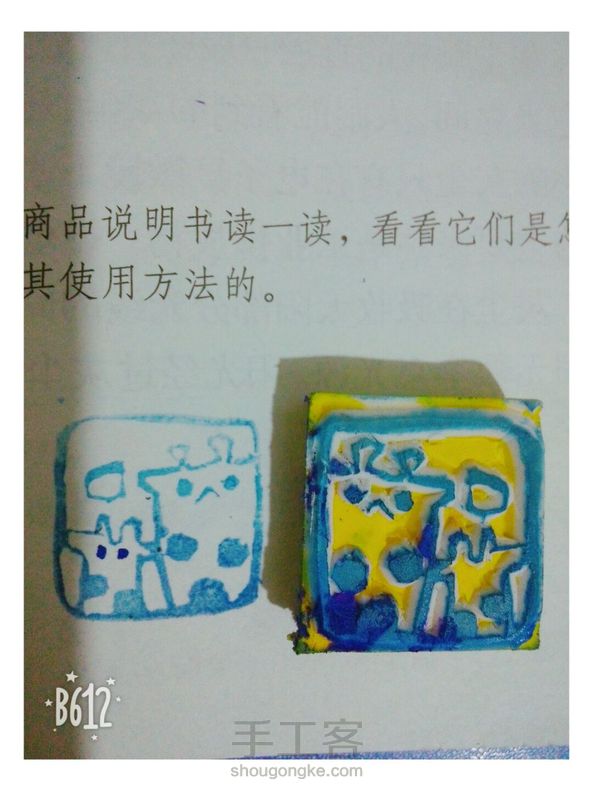 商品说明书读一读，看看它们是怎
其使用方法的。
B612
手工客
shougongke.com